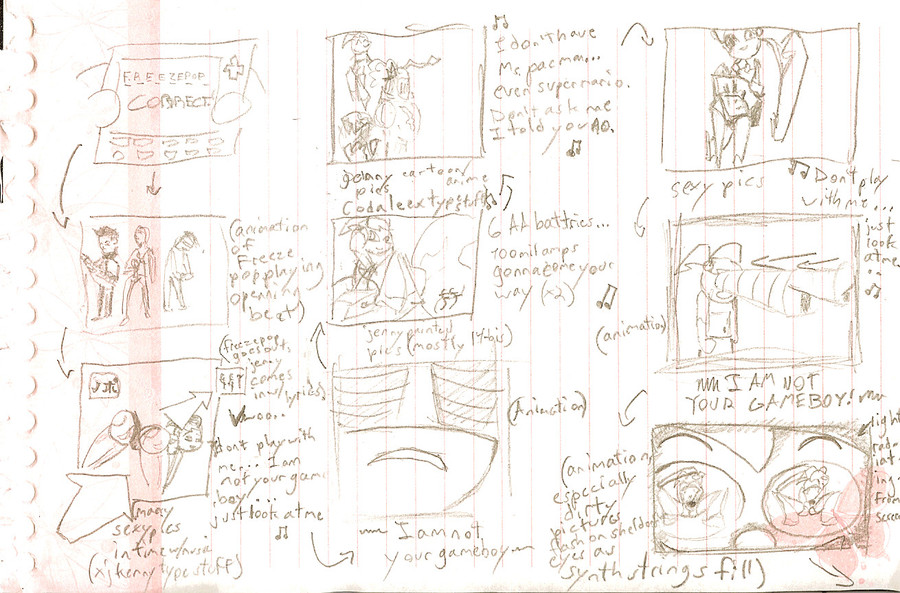 FREEZEPOP
CORRECT!
(animation
of
Freeze
pop playing
openning
beat)
(freezepop
goes out,
jenny
comes
in w/ lyrics)
Vwoo..
dont play with
me... I am
not your game
boy!....
just look at me
many
sexy pics
in time w/ music
(xj kenny type stuff)
I don't have
Ms. pacman...
even super mario.
Don't ask me
I told you so.
cartoon/
anime
pics
type stuff
6 AA battries...
700 milamps
gonna come your
way (x2)
jenny painted
pics (mostly 14-bis)
(Animation)
I am not
your gameboy
sexy pics
Don't play
with me...
just
look
at me
..
(animation)
I AM NOT
YOUR GAMEBOY!
light
rad-
iat-
ing
from
screen
(animation,
especially
dirty
pictures
flash on sheldons
eyes as
synth strings fill)